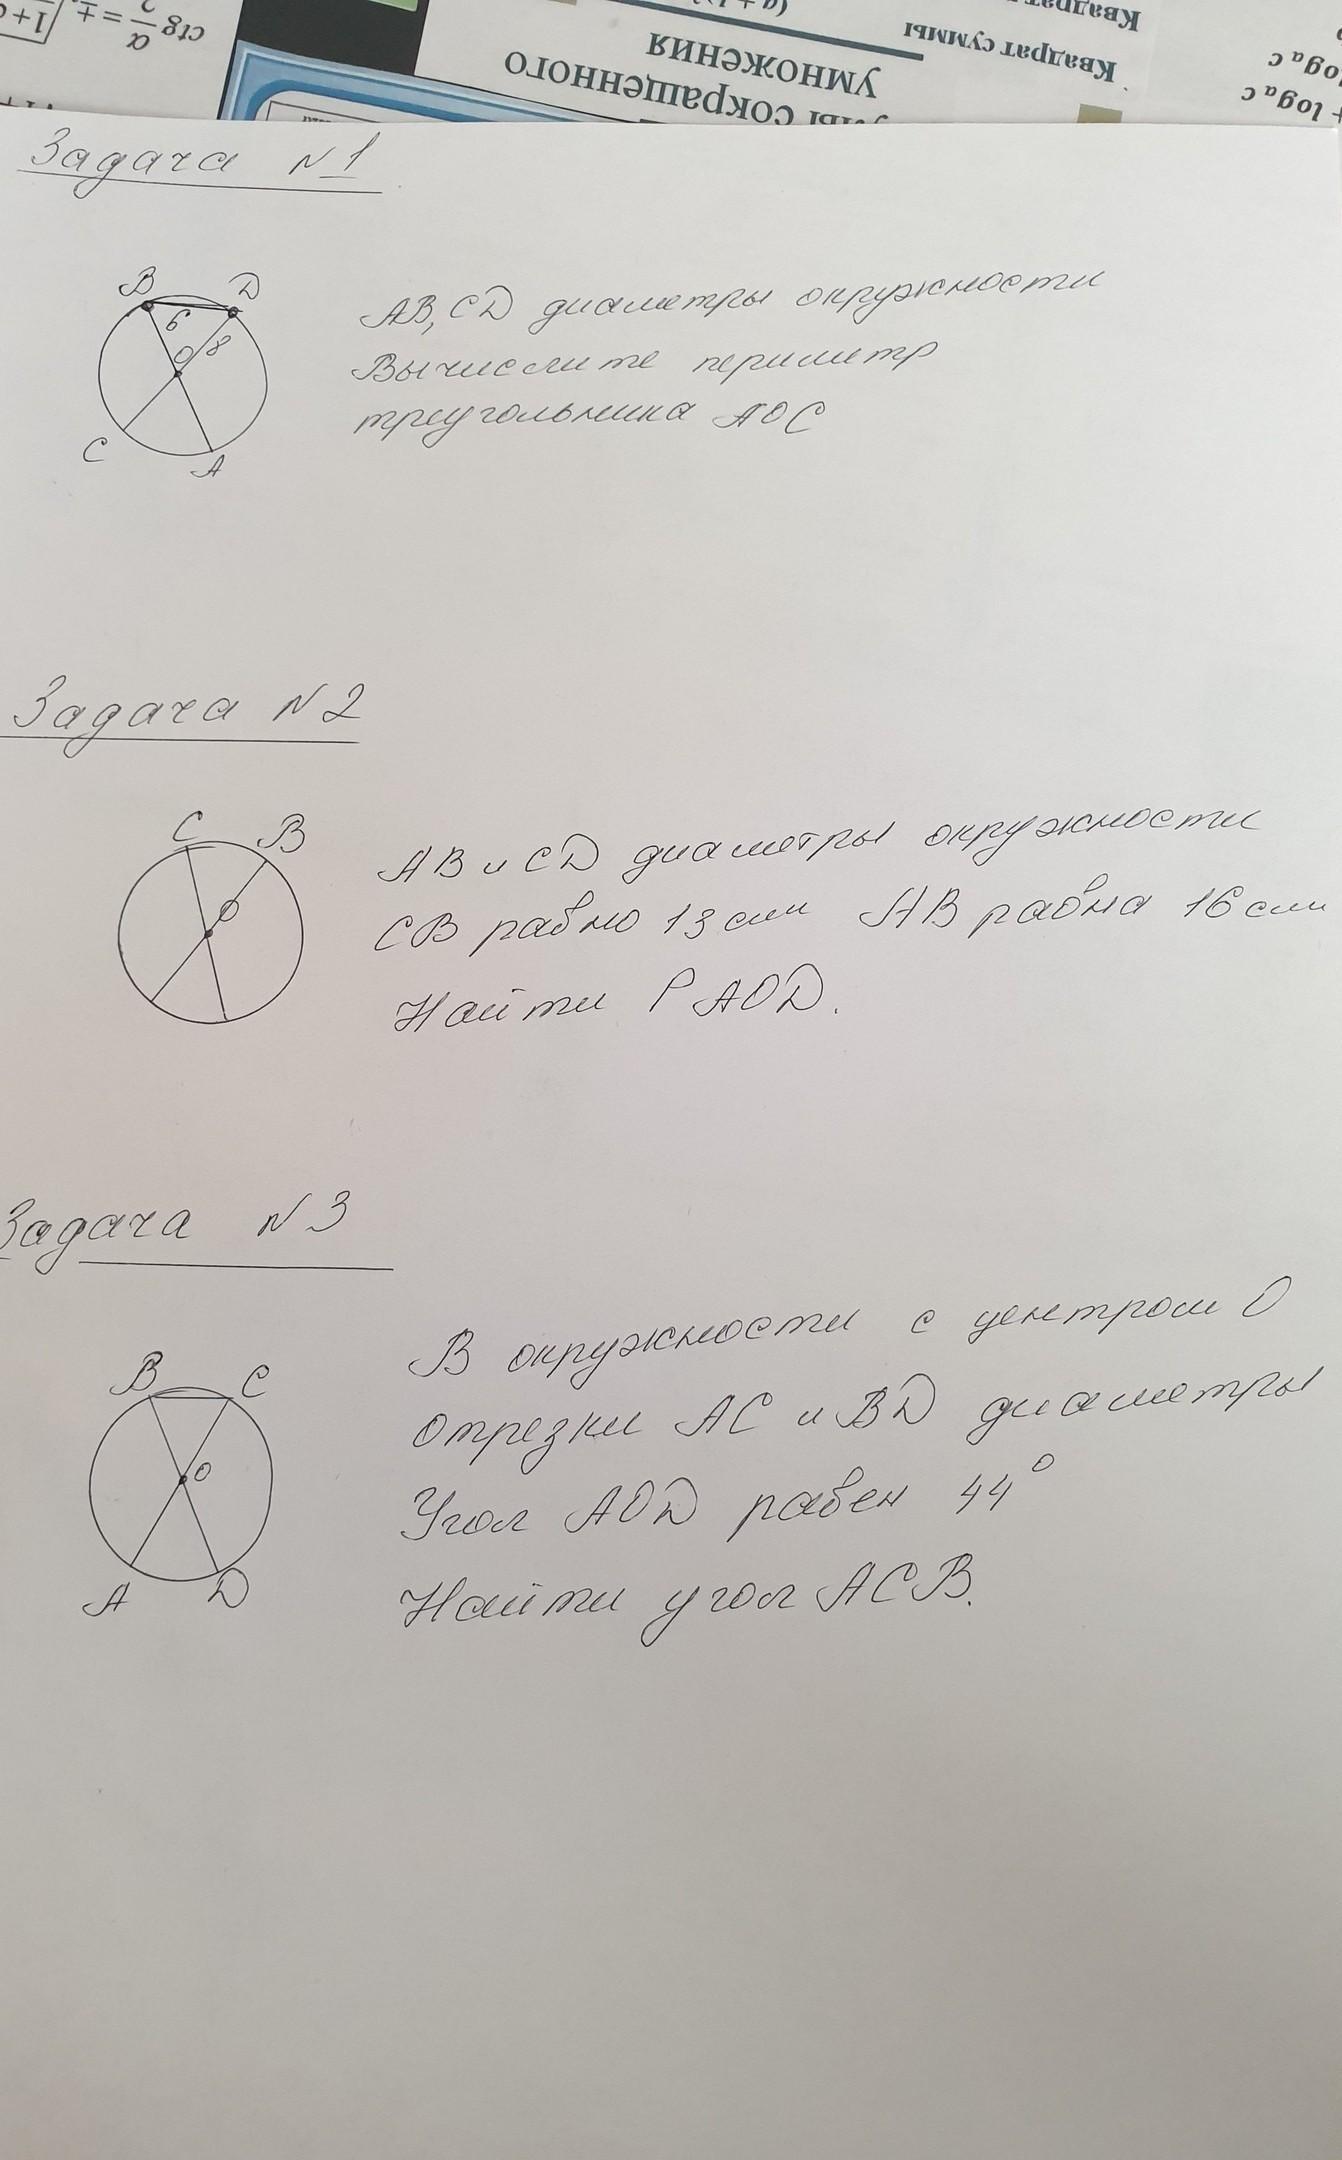 ctg α/2 = ±
умножения
сокращенного
Квадрат суммы
Квадрат
log a c
+ log a c
Задача N1
B D
6
O 8
C
A
AB, CD диаметры окружности
Вычислите периметр
треугольника AOC
Задача N2
C B
O
AB и CD диаметры окружности
CB равно 13 см AB равна 16 см
Найти P AOD.
Задача N3
B C
O
A D
В окружности с центром O
отрезки AC и BD диаметры
Угол AOD равен 44°
Найти угол ACB.